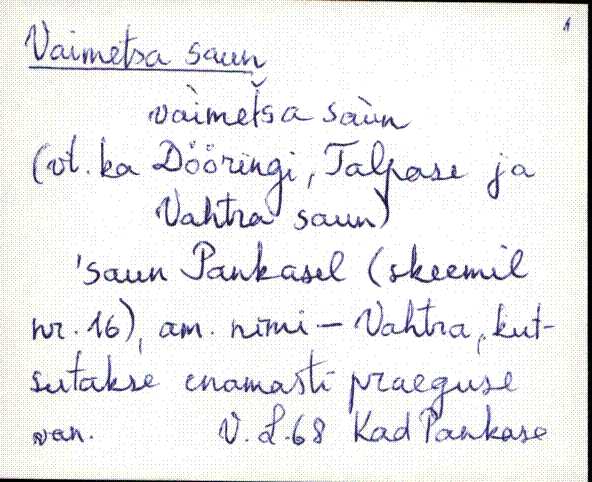 1
Vaimetsa saun
vàimetša saùn
(vt. ka Dööringi, Talpase ja
Vahtra saun)
'saun Pankasel (skeemil
nr. 16), am. nimi – Vahtra, kut-
sutakse enamasti praeguse
van. V. L. 68 Kad Pankase